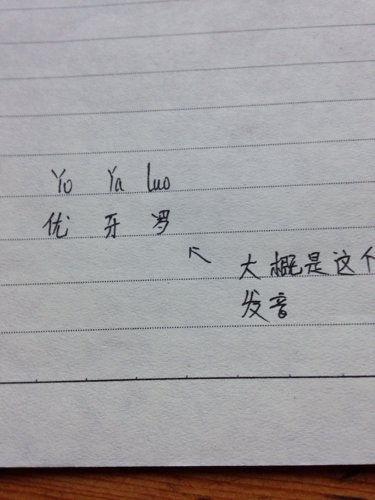 Yo Ya luo
优 牙 罗
大概是这个
发音